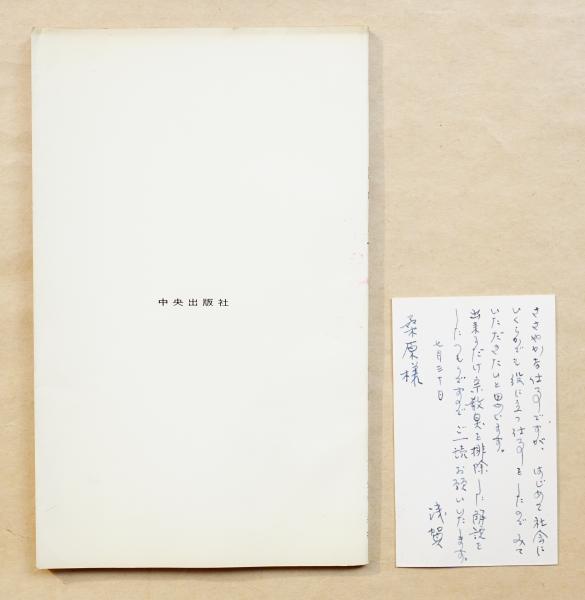 中央出版社
ささやかな仕事ですが、はじめて社会に
いくらかでも役に立つ仕事をしたのでみて
いただきたいと思います。
出来るだけ宗教臭を排除した解説を
したつもりですのでご一読お願いいたします。
七月三十日
浅賀
桑原様